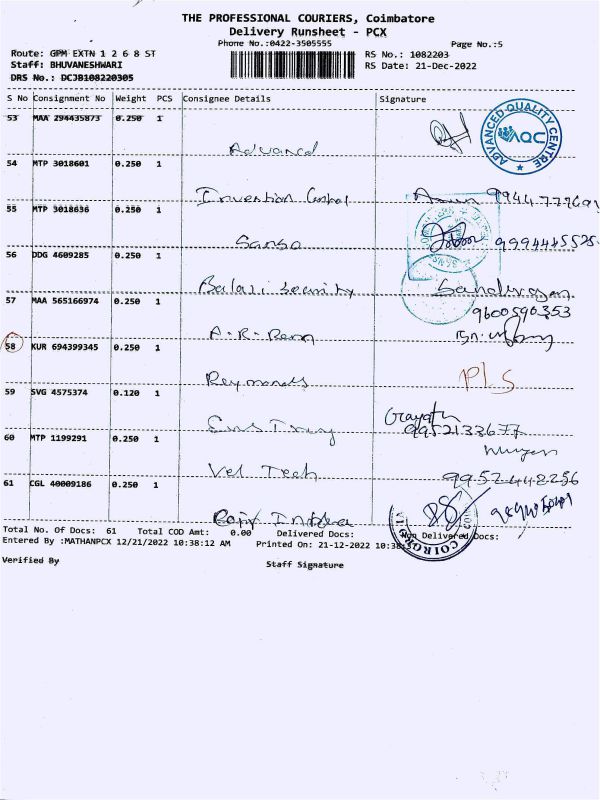 THE PROFESSIONAL COURIERS, Coimbatore
Delivery Runsheet - PCX
Phone No.:0422-3505555 Page No.:5
Route: GPM EXTN 1 2 6 8 ST RS No.: 1082203
Staff: BHUVANESHWARI RS Date: 21-Dec-2022
DRS No.: DCJB108220305
S No Consignment No Weight PCS Consignee Details Signature
53 MAA 294435873 0.250 1
Advanced
ADVANCED QUALITY CENTRE
AQC
54 MTP 3018601 0.250 1
Invention
55 MTP 3018636 0.250 1
Sansa 9994485528
56 DDG 4609285 0.250 1
Balaji Security
57 MAA 565166974 0.250 1 9600590353
A.R.
58 KUR 694399345 0.250 1
Reymonds PLS
59 SVG 4575374 0.120 1
Gayathri
9952133677
60 MTP 1199291 0.250 1
Vel Tech 9952448256
61 CGL 40009186 0.250 1
Total No. Of Docs: 61 Total COD Amt: 0.00 Delivered Docs: Non Delivered Docs:
Entered By :MATHANPCX 12/21/2022 10:38:12 AM Printed On: 21-12-2022
Verified By Staff Signature